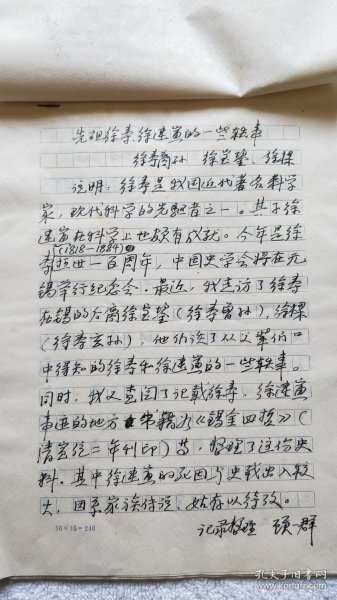 先祖徐寿、徐建寅的一些轶事
徐寿裔孙 徐 鋆、徐
说明：徐寿是我国近代著名科学
家，现代科学的先驱者之一。其子徐
建寅在科学上也颇有成就。今年是徐
寿(1818—1884)逝世一百周年，中国史学会将在无
锡举行纪念会。最近，我走访了徐寿
在锡的后裔徐 鋆(徐寿曾孙)，徐
(徐寿玄孙)，他们谈了从父辈们口
中得知的徐寿和徐建寅的一些轶事。
同时，我又查阅了记载徐寿、徐建寅
事迹的地方书籍《锡金四哲》(
清宣统二年刊印)等，整理了这份史
料。其中徐建寅的死因与史载出入较
大，因系家族传说，姑存以待考。
记录整理 顾一群
16×15=240
孔夫子旧书网